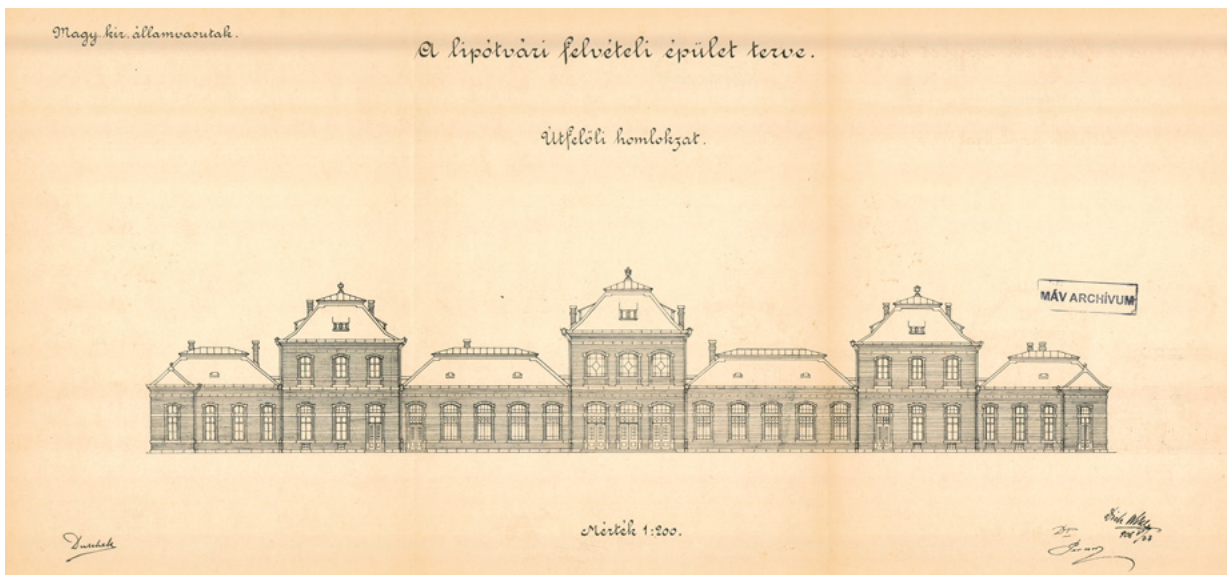 Magy. kir. államvasutak.
A lipótvári felvételi épület terve.
Útfelőli homlokzat.
MÁV ARCHÍVUM
Mérték 1:200.
Dr